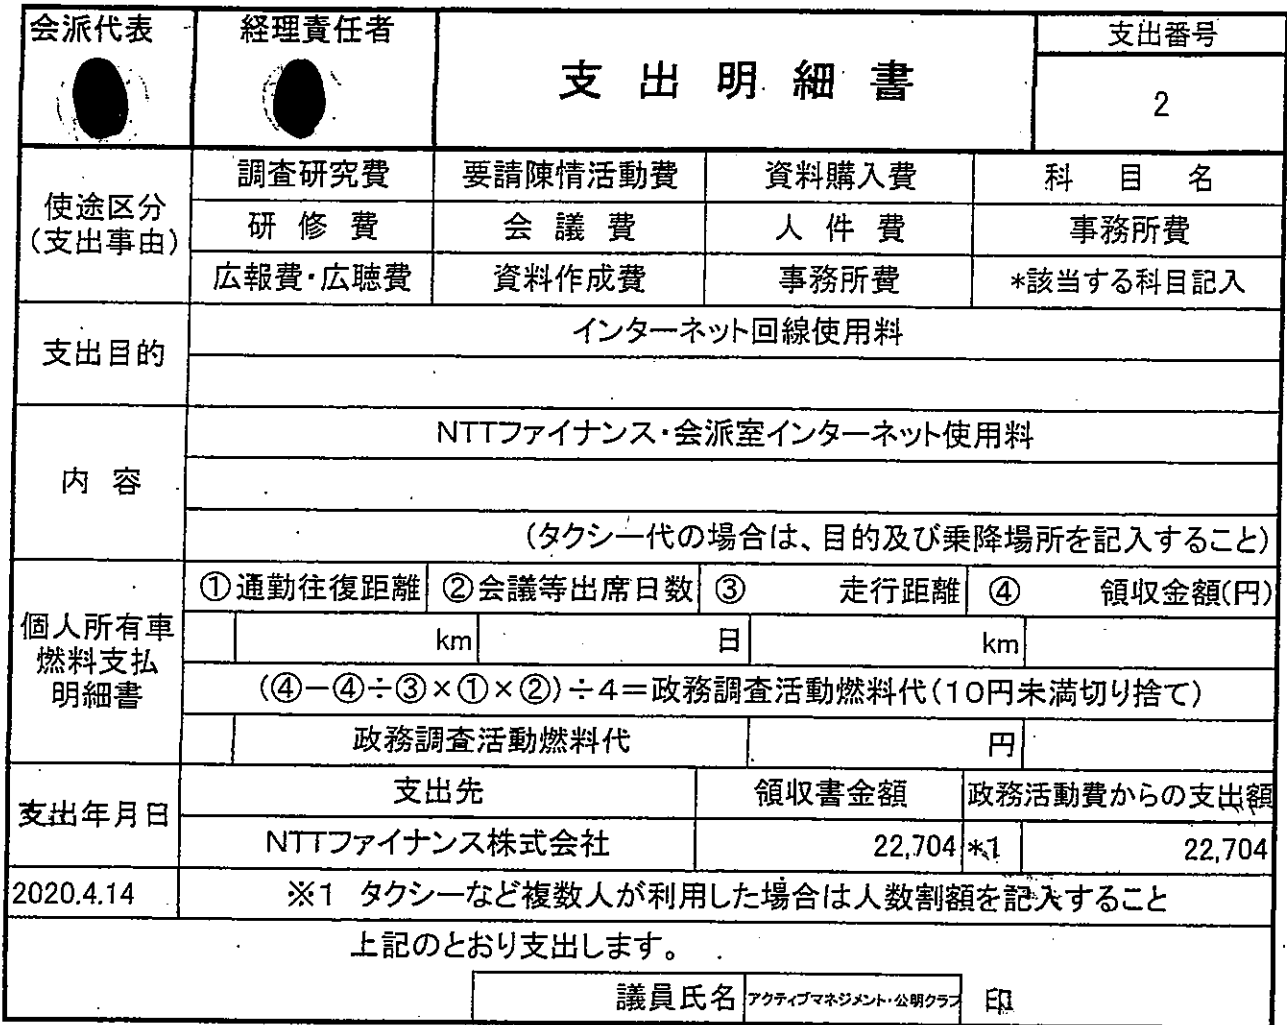 会派代表 経理責任者 支出明細書 支出番号
2
使途区分
(支出事由)
調査研究費 要請陳情活動費 資料購入費 科目名
研修費 会議費 人件費 事務所費
広報費・広聴費 資料作成費 事務所費 *該当する科目記入
支出目的
インターネット回線使用料
内容
NTTファイナンス・会派室インターネット使用料
(タクシー代の場合は、目的及び乗降場所を記入すること)
個人所有車
燃料支払
明細書
①通勤往復距離 ②会議等出席日数 ③ 走行距離 ④ 領収金額(円)
km 日 km
(④-④÷③×①×②)÷4=政務調査活動燃料代(10円未満切り捨て)
政務調査活動燃料代 円
支出年月日 支出先 領収書金額 政務活動費からの支出額
NTTファイナンス株式会社 22,704 *1 22,704
2020.4.14 ※1 タクシーなど複数人が利用した場合は人数割額を記入すること
上記のとおり支出します。
議員氏名 アクティブマネジメント・公明クラブ 印